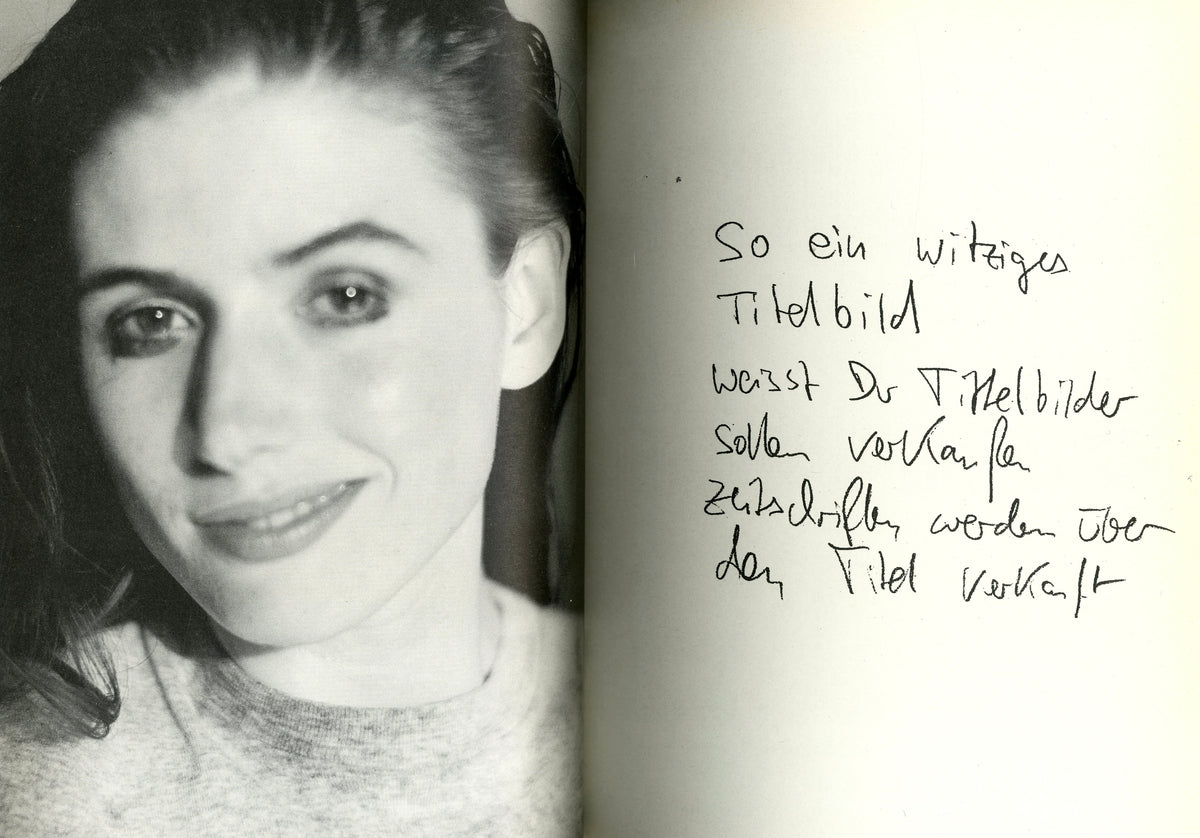 So ein witziges
Titelbild
weisst Du Tittelbilder
sollen verkaufen
Zeitschriften werden über
den Titel verkauft